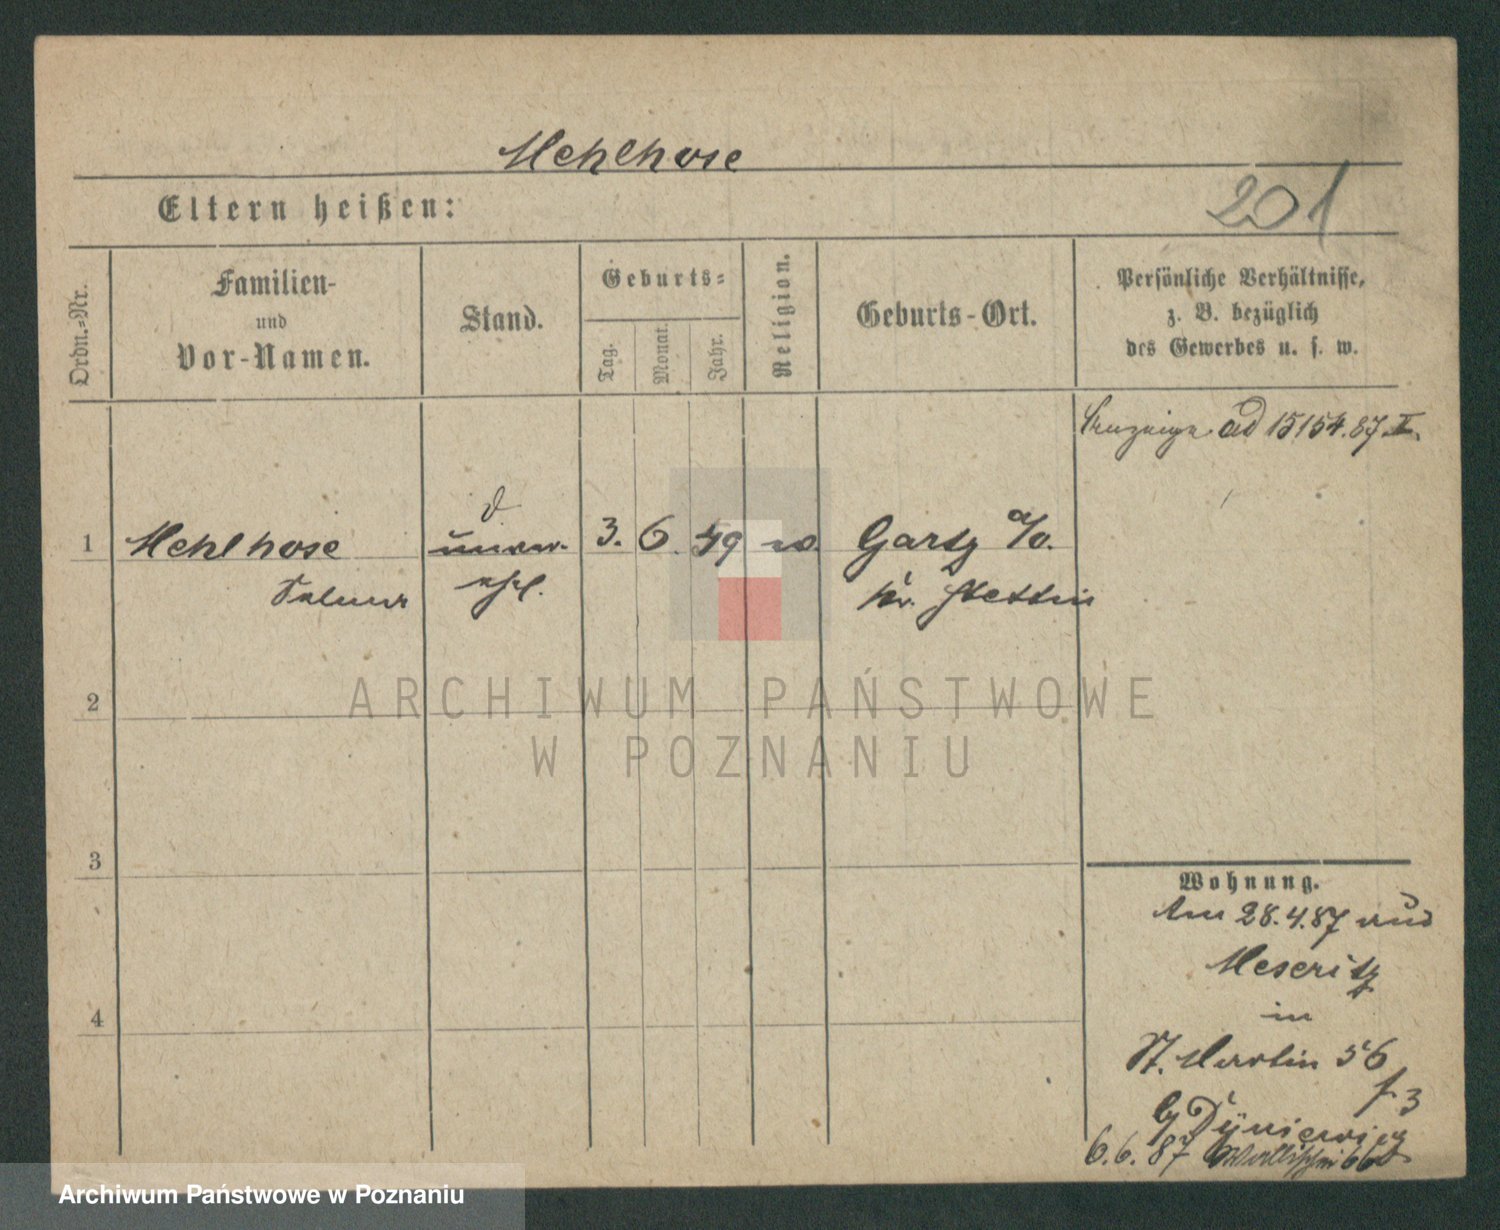 Mehlhose
Eltern heißen:
201
Ordn.=Nr.
Familien-
und
Vor-Namen.
Stand.
Geburts=
Tag.
Monat.
Jahr.
Religion.
Geburts-Ort.
Persönliche Verhältnisse,
z. B. bezüglich
des Gewerbes u. s. w.
ad 15154.87.I.
1
Mehlhose
3. 6. 49
Gartz a/O.
Kr. Stettin
2
ARCHIWUM PAŃSTWOWE
W POZNANIU
3
4
Wohnung.
Am 28.4.87 aus
Meseritz
in
St. Martin 56
b/
6.6.87 Wallischei 66
Archiwum Państwowe w Poznaniu